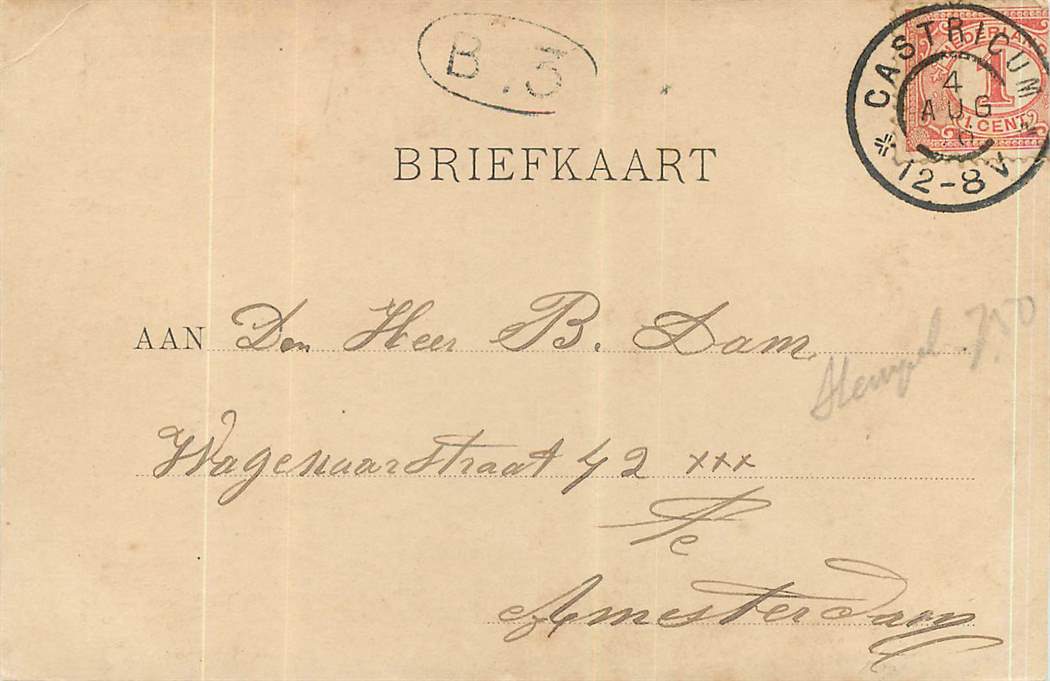 B 13
CASTRICUM
4
AUG
12-8 V
NEDERLAND
1
1. CENT
BRIEFKAART
AAN Den Heer B. Dam
Wagenaarstraat 42 xxx
Te
Amesterdam
Stempel 7.50